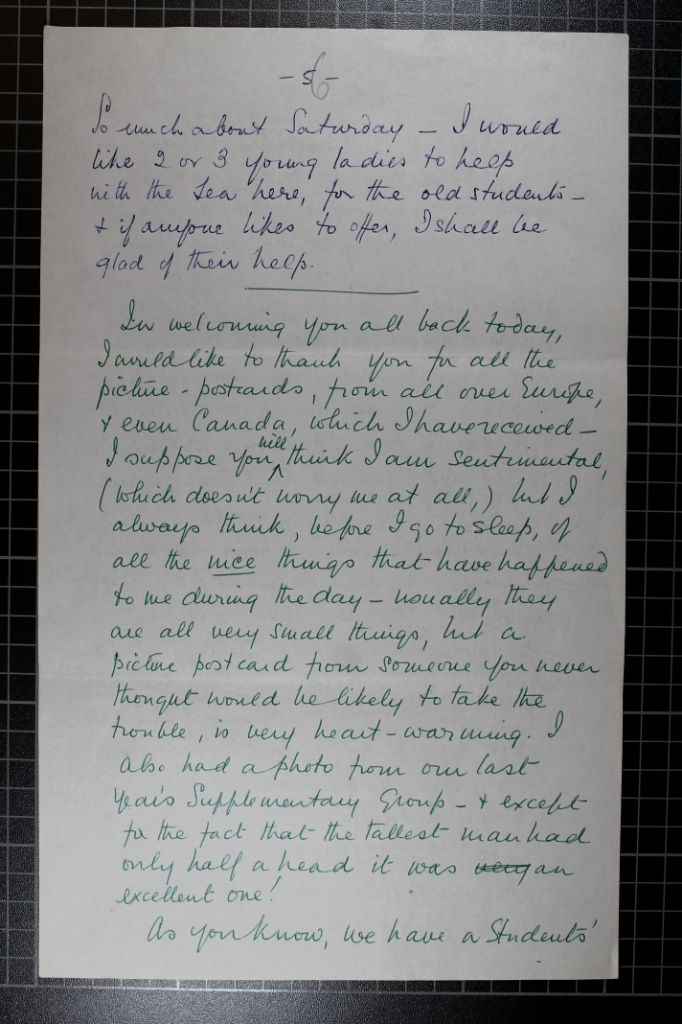 - 6 -
So much about Saturday - I would
like 2 or 3 young ladies to help
with the tea here, for the old students -
& if anyone likes to offer, I shall be
glad of their help.
In welcoming you all back today,
I would like to thank you for all the
picture-postcards, from all over Europe,
& even Canada, which I have received -
I suppose you will think I am sentimental,
(which doesn't worry me at all,) but I
always think, before I go to sleep, of
all the nice things that have happened
to me during the day - usually they
are all very small things, but a
picture postcard from someone you never
thought would be likely to take the
trouble, is very heart-warming. I
also had a photo from our last
Year's Supplementary Group - & except
for the fact that the tallest man had
only half a head it was very an
excellent one!
As you know, we have a Students'